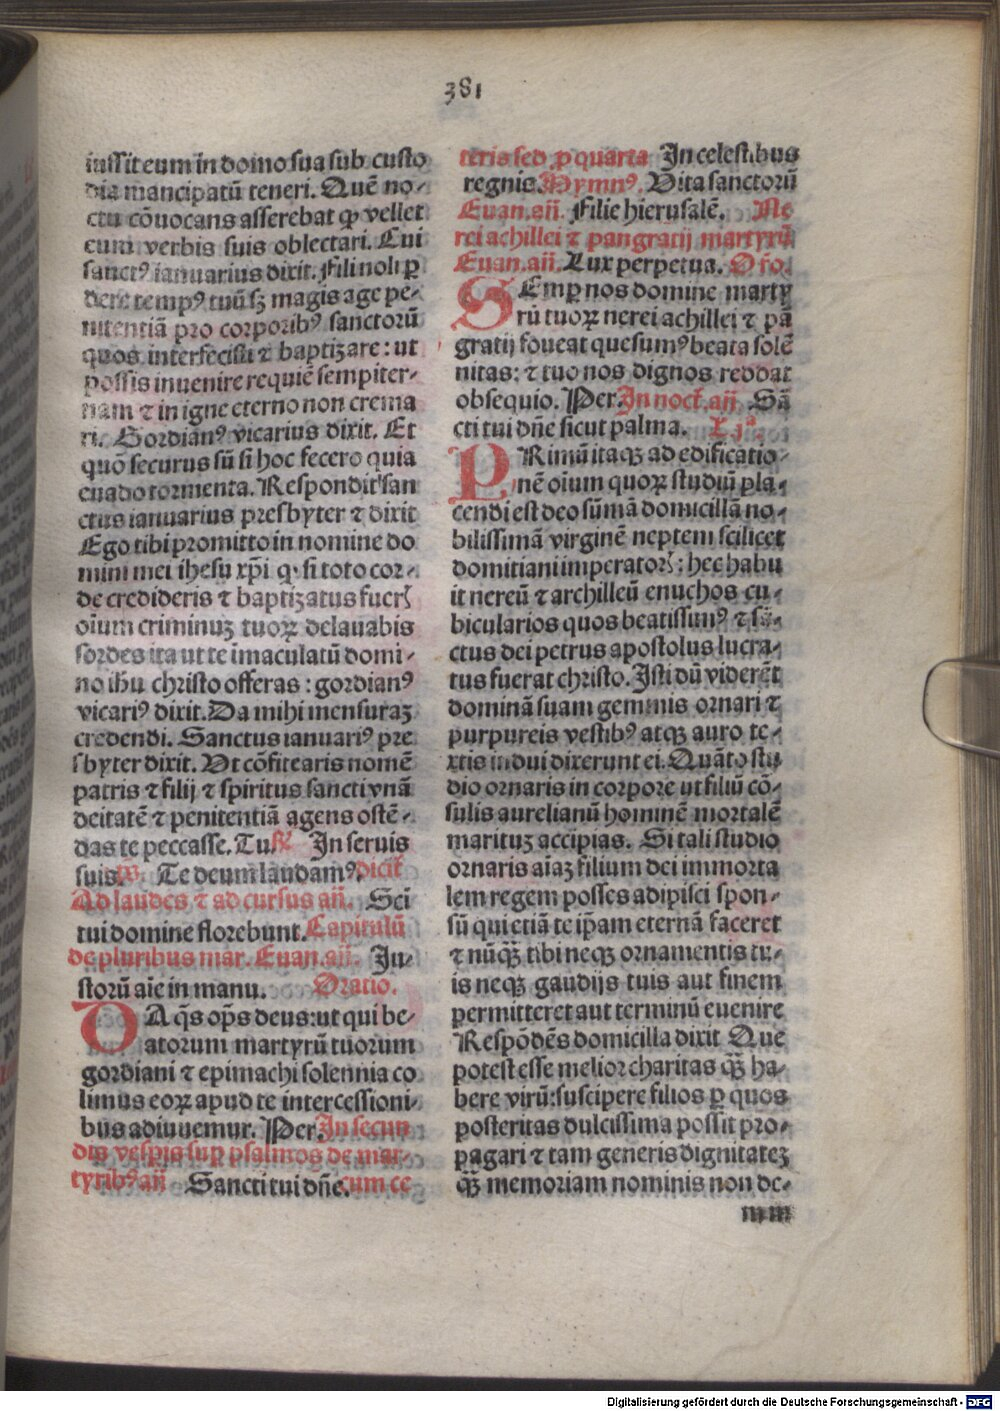 381
iussit eum in domo sua sub custo
dia mancipatū teneri. Quē no-
ctu cōuocans asserebat ꝙ vellet
eum verbis suis oblectari. Cui
sanctꝰ ianuarius dixit. Fili noli ꝑ
dere tempꝰ tuū sꝫ magis age pe-
nitentiā pro corporibꝰ sanctorū
quos interfecisti ⁊ baptizare: ut
possis inuenire requiē sempiter-
nam ⁊ in igne eterno non crema
ri. Gordianꝰ vicarius dixit. Et
quō securus sū si hoc fecero quia
euado tormenta. Respondit san
ctus ianuarius presbyter ⁊ dixit
Ego tibi promitto in nomine do
mini mei ihesu xp̄i ꝙ si toto cor-
de credideris ⁊ baptizatus fuer̄
oīum criminuꝫ tuoꝝ delauabis
sordes ita ut te imaculatū domi-
no ihū christo offeras : gordianꝰ
vicariꝰ dixit. Da mihi mensuraꝫ
credendi. Sanctus ianuariꝰ pre
sbyter dixit. Vt cōfitearis nomē
patris ⁊ filij ⁊ spiritus sancti vnā
deitatē ⁊ penitentiā agens ostē-
das te peccasse. Tu ℟ In seruis
suis. ps. Te deum laudamꝰ. Dicit̄
Ad laudes ⁊ ad cursus añ. Sc̄i
tui domine florebunt. Capitulū
de pluribus mar. Euan. añ. Ju-
storū aīe in manu. Oratio.
DA q̄s op̄s deus: ut qui be-
atorum martyrū tuorum
gordiani ⁊ epimachi solennia co
limus eoꝝ apud te intercessioni-
bus adiuuemur. Per. In secun
dis vesp̄is suꝑ psalmos de mar-
tyribꝰ añ Sancti tui dn̄e. cum ce
teris sed ꝓ quarta In celestibus
regnis. Hymnꝰ. Vita sanctorū
Euan. añ. Filie hierusalē. Ne
rei achillei ⁊ pangratij martyrū
Euan. añ. Lux perpetua. Or̄o.
SEmꝑ nos domine marty
rū tuoꝝ nerei achillei ⁊ pā
gratij foueat quesumꝰ beata solē
nitas: ⁊ tuo nos dignos reddat
obsequio. Per. In noct̄. añ. Sā
cti tui dn̄e sicut palma. L. j.ª
PRimū itaqꝫ ad edificatio-
nē oīum quoꝝ studiū ꝑla-
cendi est deo sūmā domicillā no-
bilissimā virginē neptem scilicet
domitiani imperator̄ : hec habu
it nereū ⁊ archilleū enuchos cu-
bicularios quos beatissimꝰ ⁊ sā-
ctus dei petrus apostolus lucra-
tus fuerat christo. Isti dū viderēt
dominā suam gemmis ornari ⁊
purpureis vestibꝰ atqꝫ auro te-
xtis indui dixerunt ei. Quāto stu
dio ornaris in corpore ut filiū cō-
sulis aurelianū hominē mortalē
marituꝫ accipias. Si tali studio
ornaris aīaꝫ filium dei immorta
lem regem posses adipisci spon-
sū qui etiā te ip̄am eternā faceret
⁊ nūqꝫ tibi neqꝫ ornamentis tu-
is neqꝫ gaudijs tuis aut finem
ꝑmitteret aut terminū euenire
Respōdēs domicilla dixit Que
potest esse melior charitas qꝫ ha-
bere virū: suscipere filios ꝑ quos
posteritas dulcissima possit pro-
pagari ⁊ tam generis dignitateꝫ
qꝫ memoriam nominis non de-
mm
Digitalisierung gefördert durch die Deutsche Forschungsgemeinschaft - DFG